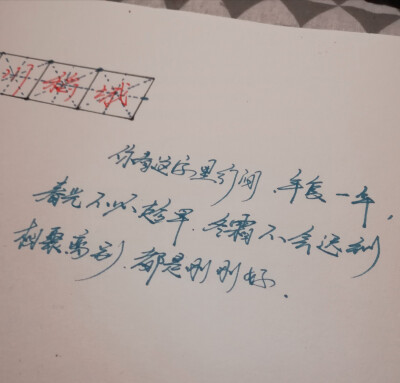 你看这字里行间.年复一年,
春光不必趁早.冬霜不会迟到
相聚离别.都是刚刚好.